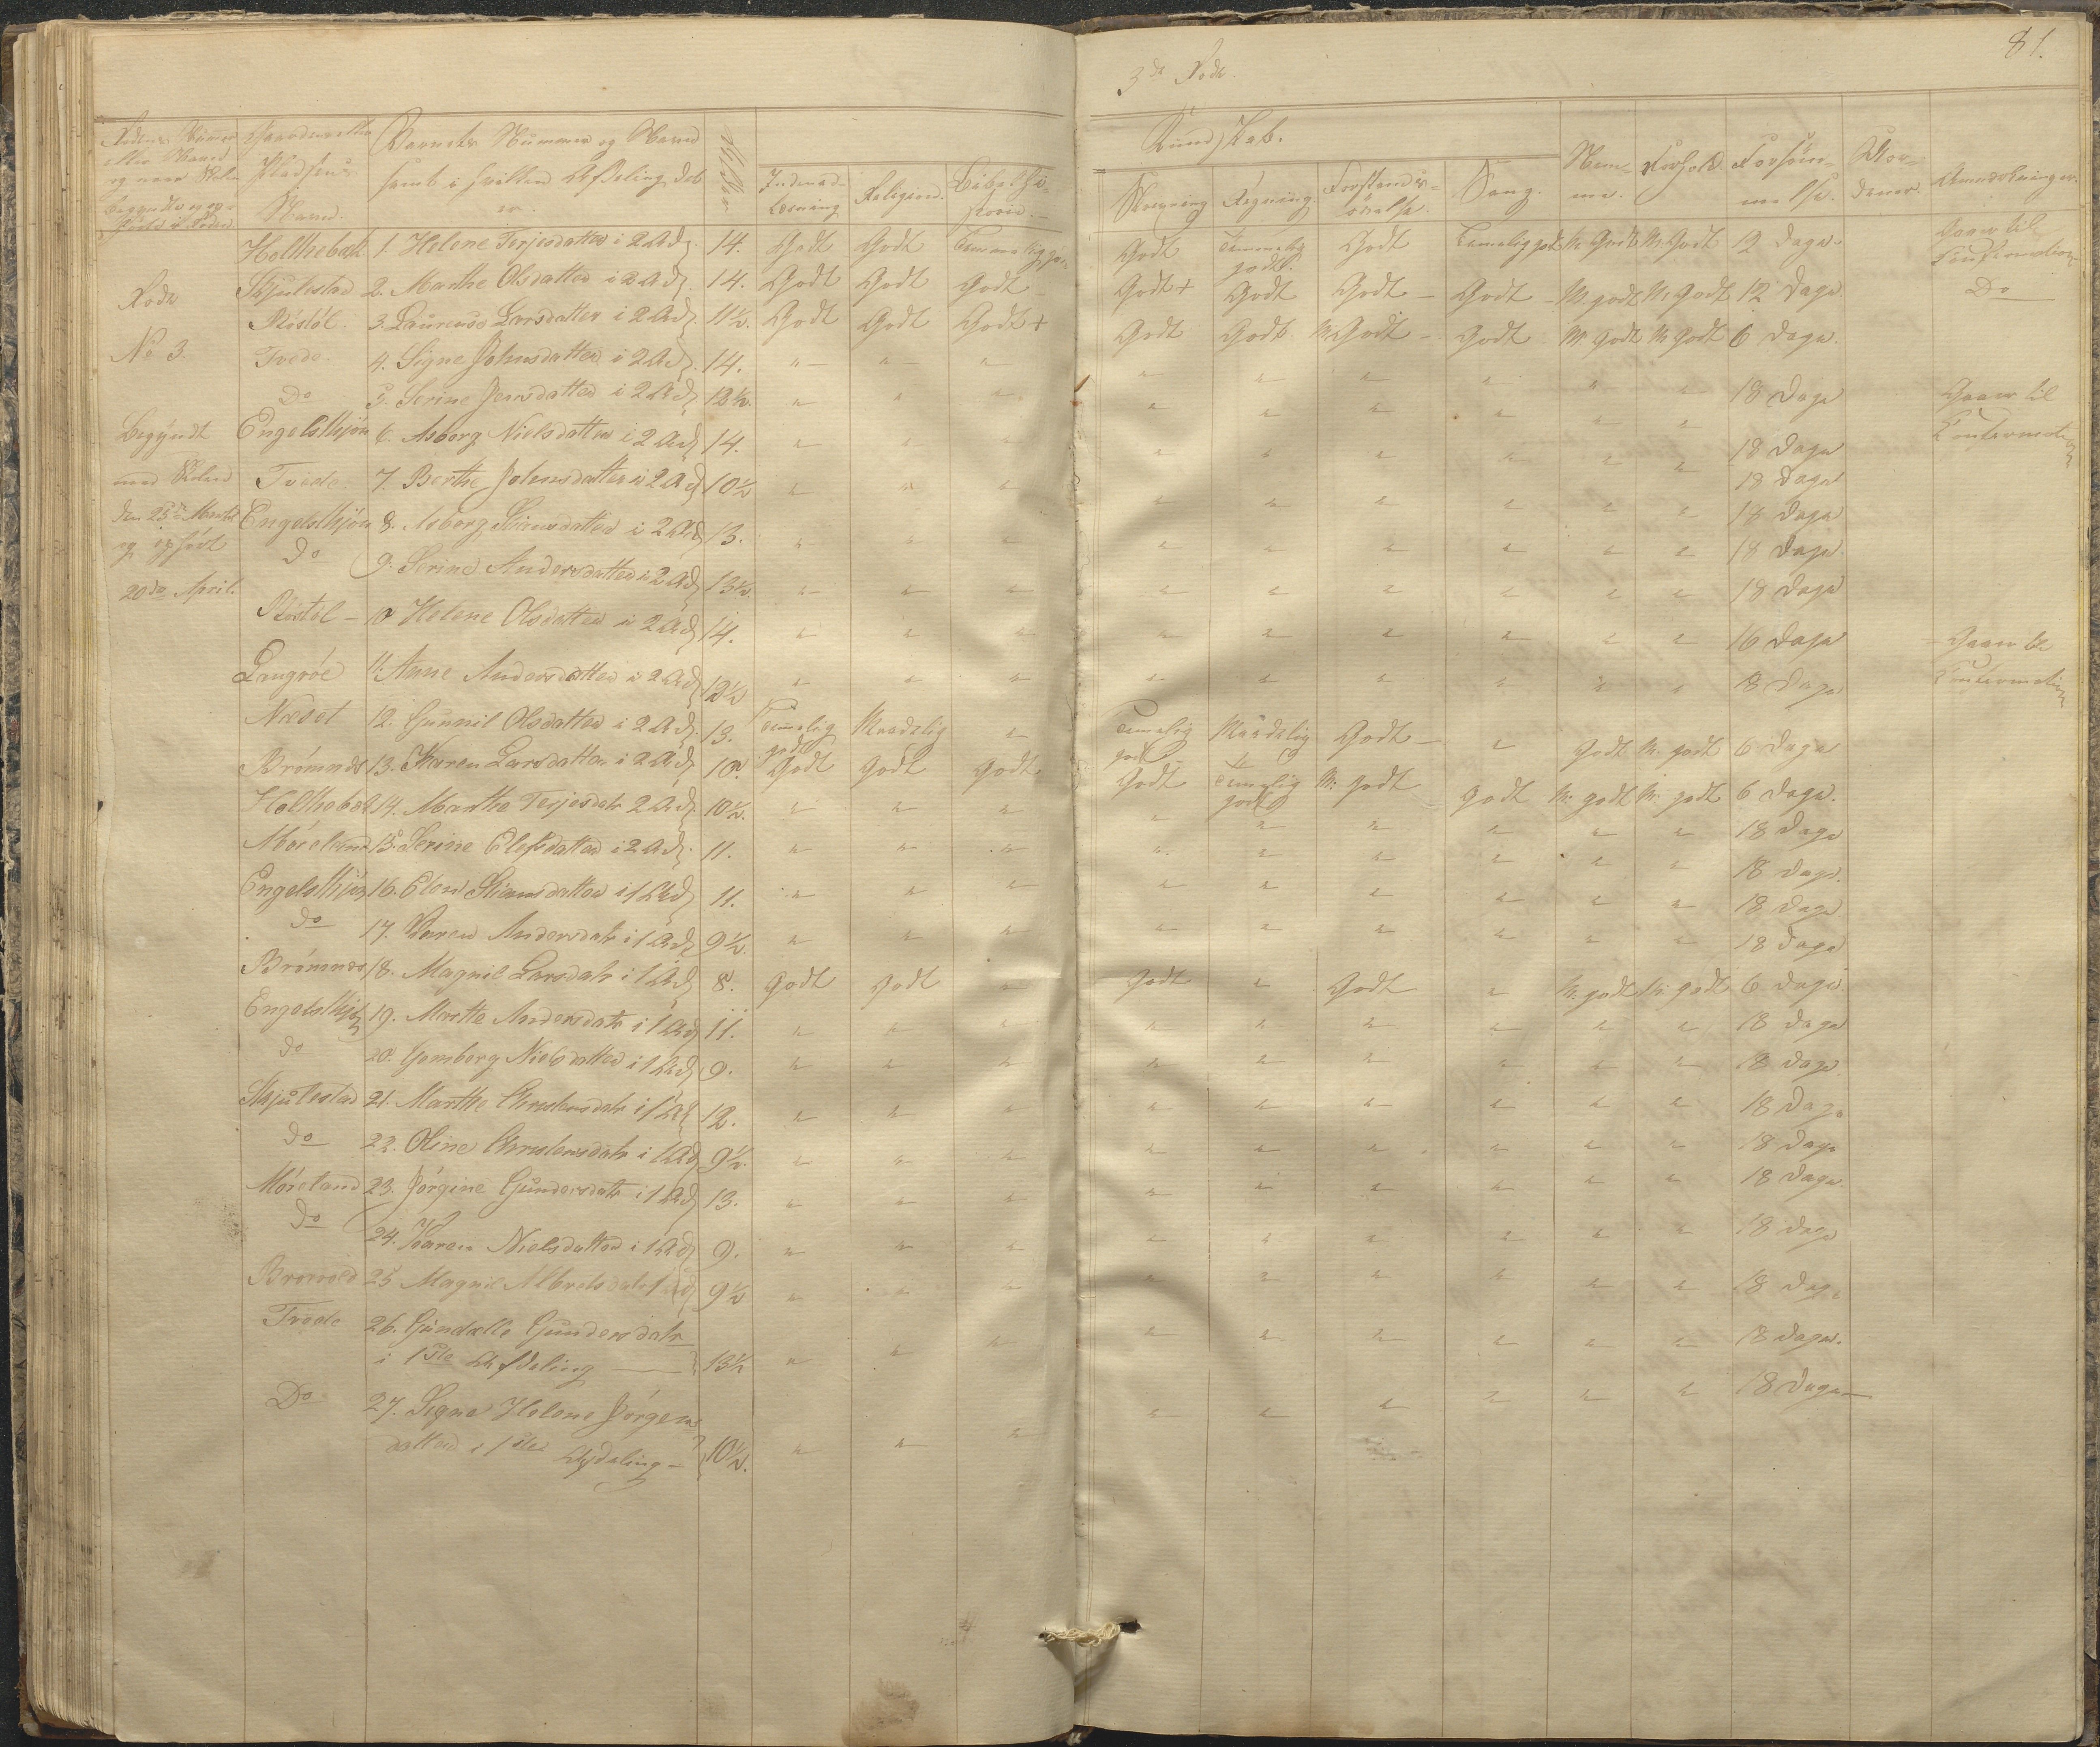 81.
3de Rode.
Rodens Nummer eller Navn og naar Skolen begyndte og ophørte i Roden
Gaardens eller Pladsens Navn.
Barnets Nummer og Navn samt i hvilken Afdeling det er.
Alder
Kundskab.
Indenadlæsning
Religion.
Bibelhistorie.
Skrivning
Regning.
Forstandsøvelse.
Sang.
Nemme.
Forhold.
Forsømmelse.
Anmærkninger.
Rode
No 3.
Begyndt
med Skolen
den 23de Marts
og ophørt
20de April.
Holthebæk 1. Helene Terjesdatter i 2 Afd. 14. Godt Godt Temmelig godt Godt Temmelig godt. Godt Temelig godt M. Godt M. Godt 12 Dage Gaaer til Confirmation
Skjulestad 2. Marthe Olsdatter i 2 Afd. 14. Godt Godt Godt Godt + Godt Godt Godt M. godt M. Godt 12 Dage Do
Röstöl 3. Laurense Larsdatter i 2 Afd. 11½. Godt Godt Godt + Godt Godt M. Godt Godt M. godt M. Godt 6 Dage.
Tvede. 4. Signe Johnsdatter i 2 Afd. 14. " " " " " " " " " 18 Dage Gaaer til Confirmation
Do 5. Serine Jensdatter i 2 Afd. 12½. " " " " " " " " " 18 Dage
Engelskjön 6. Asborg Nielsdatter i 2 Afd. 14. " " " " " " " " " 18 Dage
Tvede 7. Berthe Johnsdatter i 2 Afd 10½ " " " " " " " " " 18 Dage
Engelskjön 8. Asborg Stiansdatter i 2 Afd 13. " " " " " " " " " 18 Dage
Do 9. Serine Andersdatter i 2 Afd 13½. " " " " " " " " " 18 Dage
Röstöl 10 Helene Olsdatter i 2 Afd 14. " " " " " " " " " 16 Dage Gaaer til Confirmation
Langröe 11. Anne Andersdatter i 2 Afd 12½ " " " " " " " " " 18 Dage
Næset 12. Gunnil Olsdatter i 2 Afd. 13. Temelig godt Maadelig " Temelig godt Maadelig Godt " Godt M. godt 6 Dage
Brömnes 13. Karen Larsdatter i 2 Afd. 10. Godt Godt Godt Godt Temelig godt M. godt Godt M. godt M. godt 6 Dage.
Holthebæk 14. Marthe Terjesdatr 2 Afd. 10½. " " " " " " " " " 18 Dage
Möreland 15. Serine Elefsdatter i 2 Afd. 11. " " " " " " " " " 18 Dage.
Engelskjön 16. Elen Stiansdatter i 1 Afd 11. " " " " " " " " " 18 Dage.
do 17. Karen Andersdatr i 1 Afd 9½. " " " " " " " " " 18 Dage
Brömnes 18. Magnil Larsdatr i 1 Afd 8. Godt Godt " Godt " Godt " M. godt M. godt 6 Dage.
Engelskjön 19. Marthe Andersdatr i 1 Afd 11. " " " " " " " " " 18 Dage
do 20. Gomborg Nielsdatter i 1 Afd 9. " " " " " " " " " 18 Dage.
Skjulestad 21. Marthe Christensdatr i 1 Afd 12. " " " " " " " " " 18 Dage
Do 22. Oline Christensdatr i 1 Afd 9½. " " " " " " " " " 18 Dage
Möreland 23. Jörgine Gundersdatr i 1 Afd 13. " " " " " " " " " 18 Dage.
Do 24. Karen Nielsdatter i 1 Afd 9. " " " " " " " " " 18 Dage
25 Magnil i 1 Afd 9½ " " " " " " " " " 18 Dage
Tvede 26. Gundersdatr
i 1ste Afdeling 13½ " " " " " " " " " 18 Dage.
Do 27. Signe Helene Jörgens
datter i 1ste Afdeling 10½. " " " " " " " " " 18 Dage